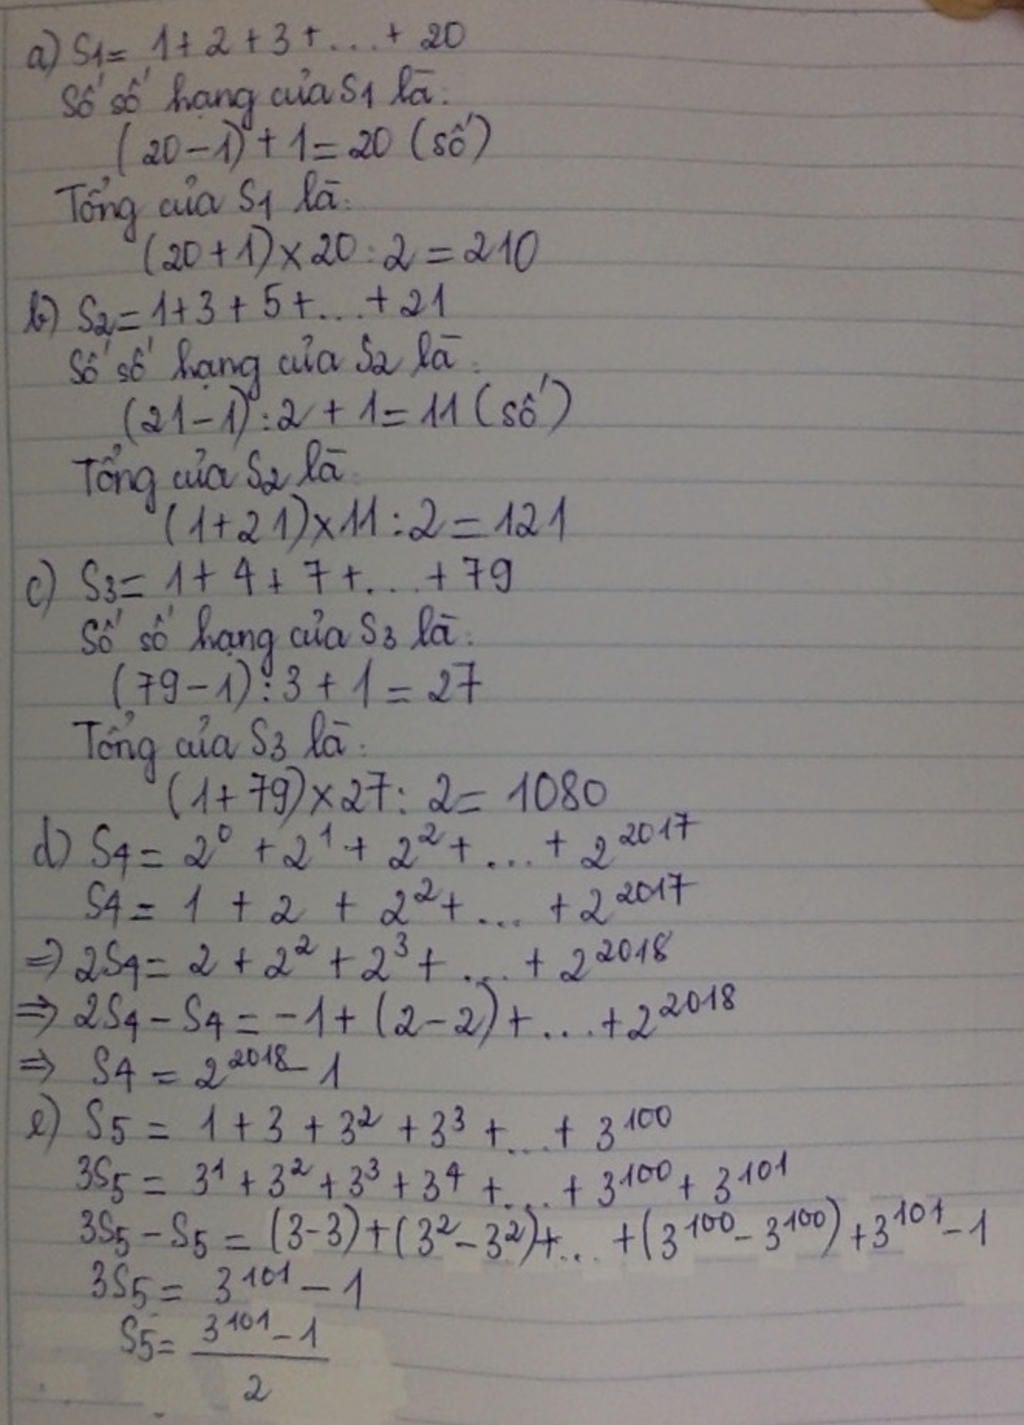 a) S1 = 1 + 2 + 3 + ... + 20
Số số hạng của S1 là:
(20 - 1) + 1 = 20 (số)
Tổng của S1 là:
(20 + 1) × 20 : 2 = 210
b) S2 = 1 + 3 + 5 + ... + 21
Số số hạng của S2 là:
(21 - 1) : 2 + 1 = 11 (số)
Tổng của S2 là:
(1 + 21) × 11 : 2 = 121
c) S3 = 1 + 4 + 7 + ... + 79
Số số hạng của S3 là:
(79 - 1) : 3 + 1 = 27
Tổng của S3 là:
(1 + 79) × 27 : 2 = 1080
d) S4 = 2⁰ + 2¹ + 2² + ... + 2²⁰¹⁷
S4 = 1 + 2 + 2² + ... + 2²⁰¹⁷
=> 2S4 = 2 + 2² + 2³ + ... + 2²⁰¹⁸
=> 2S4 - S4 = -1 + (2 - 2) + ... + 2²⁰¹⁸
=> S4 = 2²⁰¹⁸ - 1
e) S5 = 1 + 3 + 3² + 3³ + ... + 3¹⁰⁰
3S5 = 3¹ + 3² + 3³ + 3⁴ + ... + 3¹⁰⁰ + 3¹⁰¹
3S5 - S5 = (3 - 3) + (3² - 3²) + ... + (3¹⁰⁰ - 3¹⁰⁰) + 3¹⁰¹ - 1
3S5 = 3¹⁰¹ - 1
S5 = 3¹⁰¹ - 1
2